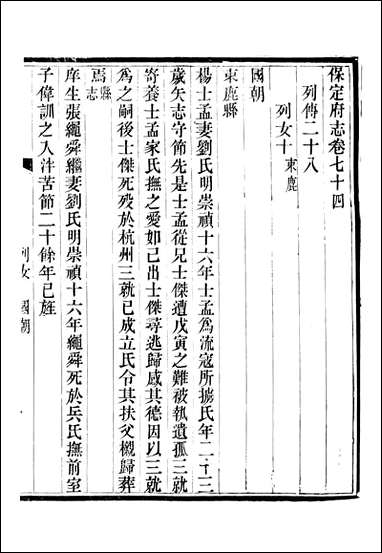 保定府志卷七十四
列傳二十八
列女十束鹿
國朝
束鹿縣
楊士孟妻劉氏明崇禎十六年士孟爲流寇所擄氏年二十二
歲矢志守節先是士孟從兄士傑遭戊寅之難被執遺孤三就
寄養士孟家氏撫之愛如己出士傑尋逃歸感其德因以三就
為之嗣後士傑死歿於杭州三就已成立氏令其扶父櫬歸葬
焉縣志
庠生張繩舜繼妻劉氏明崇禎十六年繩舜死於兵氏撫前室
子偉訓之入泮苦節二十餘年已旌
列女 國朝